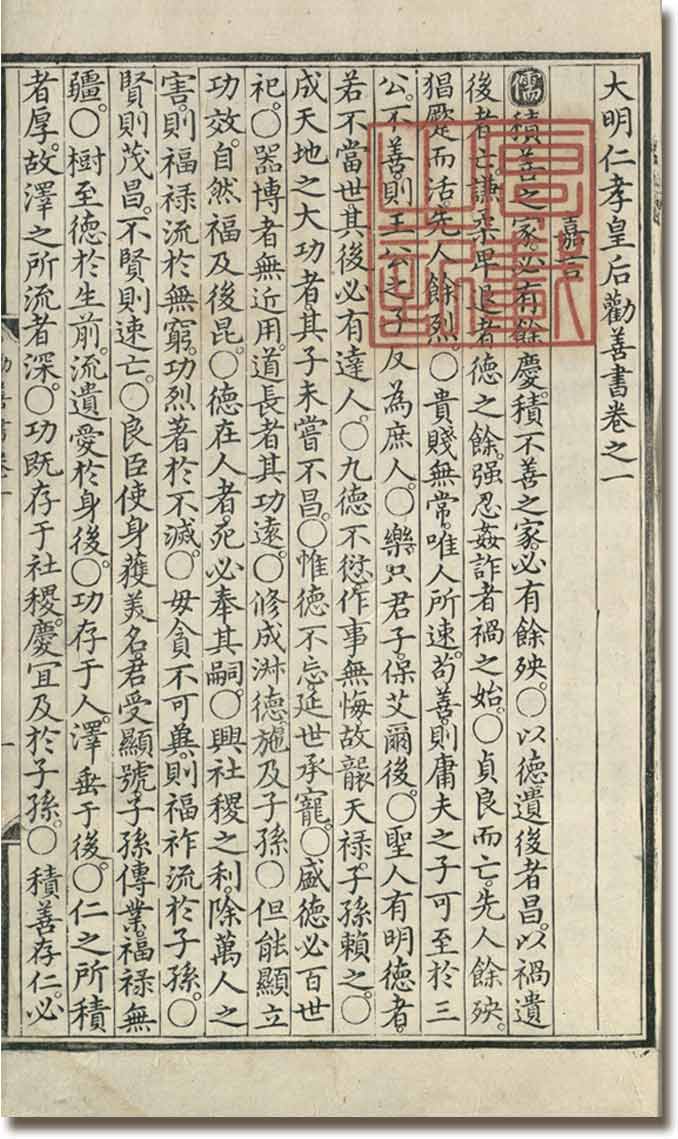 大明仁孝皇后勸善書卷之一
嘉言
儒積善之家。必有餘慶。積不善之家。必有餘殃。○以德遺後者昌。以禍遺
後者亡。謙柔卑退者德之餘。强忍姦詐者禍之始。○貞良而亡。先人餘殃。
猖蹷而活。先人餘烈。○貴賤無常。唯人所速。苟善。則庸夫之子可至於三
公。不善。則王公之子反為庶人。○樂只君子。保艾爾後。○聖人有明德者。
若不當世。其後必有達人。○九德不愆。作事無悔。故襲天禄。子孫賴之。○
成天地之大功者。其子未嘗不昌。○惟德不忘。延世承寵。○盛德必百世
祀。○器博者無近用。道長者其功遠。○修成淑德。施及子孫○但能顯立
功效。自然福及後昆。○德在人者。死必奉其嗣。○興社稷之利。除萬人之
害。則福禄流於無窮。功烈著於不滅。○毋貪不可冀。則福祚流於子孫。○
賢則茂昌。不賢則速亡。○良臣使身獲美名。君受顯號。子孫傳業。福禄無
疆。○樹至德於生前。流遺愛於身後。○功存于人。澤垂于後。○仁之所積
者厚。故澤之所流者深。○功既存于社稷。慶宜及於子孫。○積善存仁。必